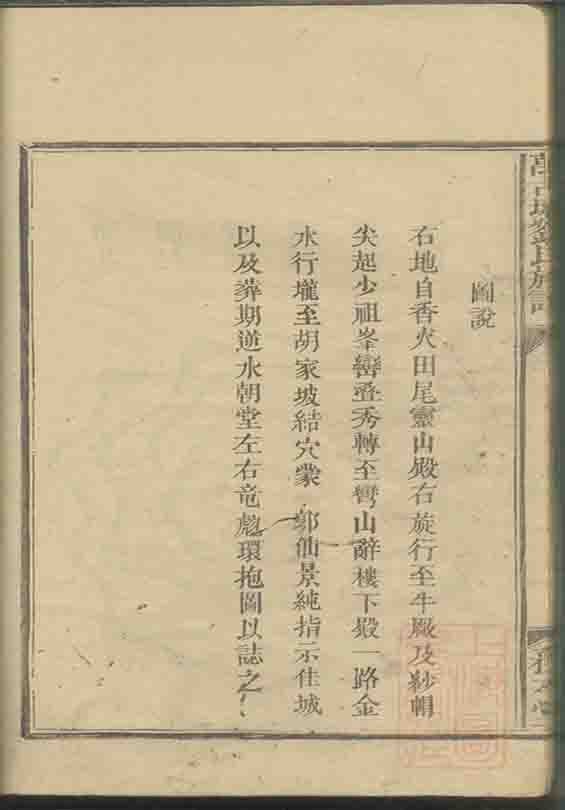 圖說
右地自香火田尾靈山殿右旋行至牛厰及紗帽
尖起少祖峯巒叠秀轉至彎山辭樓下殿一路金
水行壠至胡家坡結穴蒙 郭仙景純指示佳城
以及葬期逆水朝堂左右竜彪環抱圖以誌之